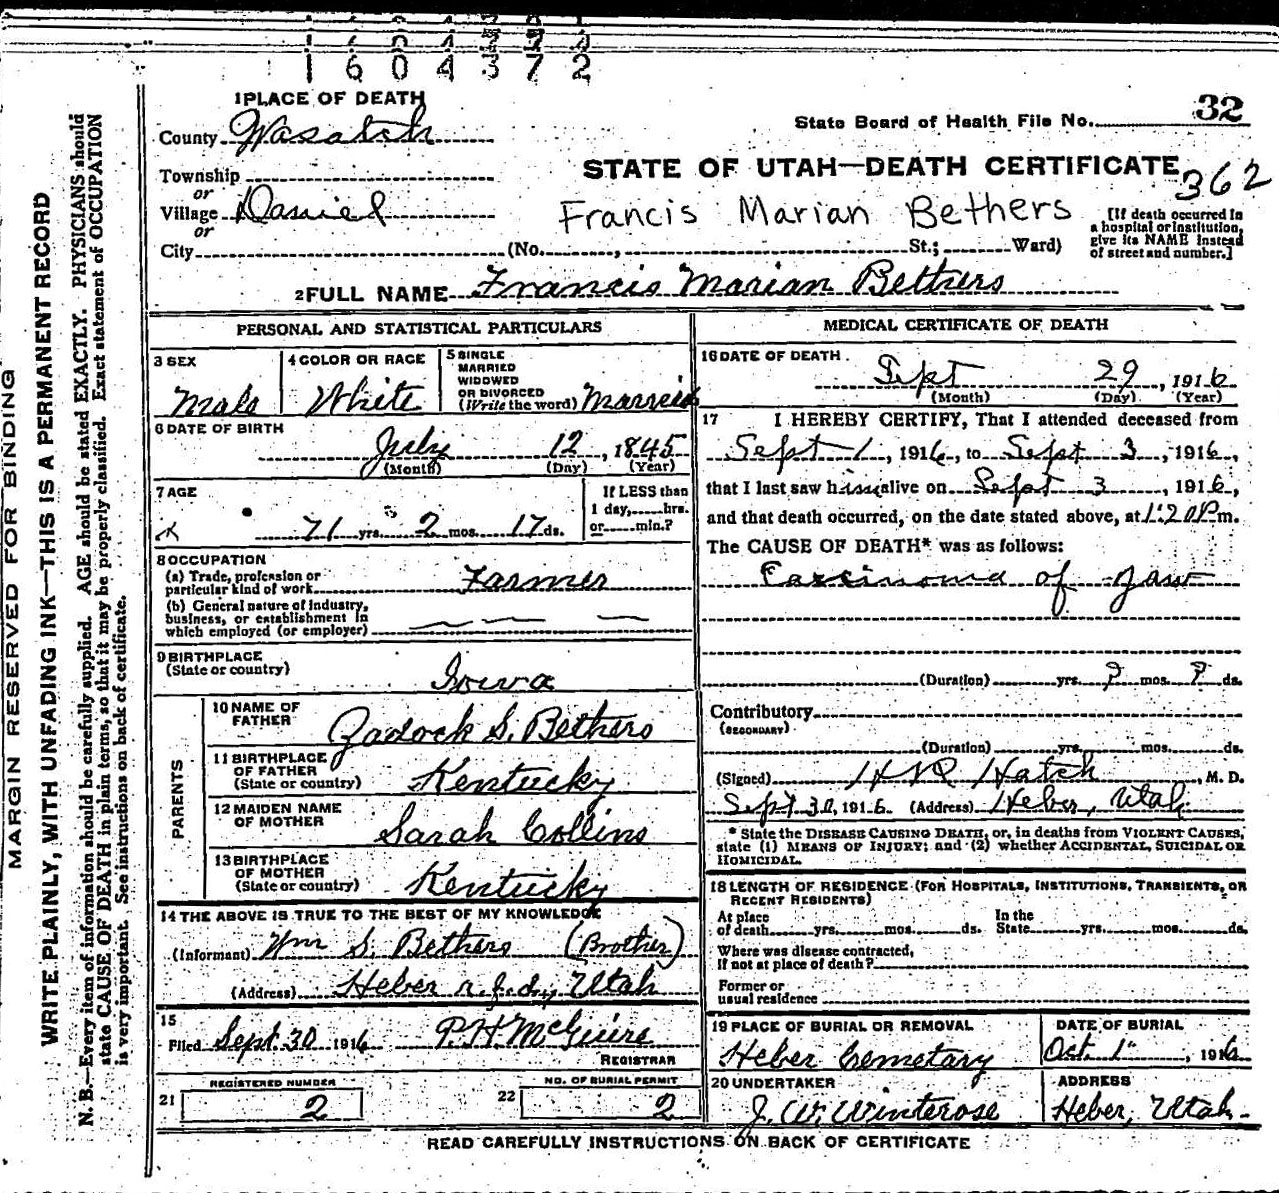 1604372
1 PLACE OF DEATH
County Wasatch
State Board of Health File No. 32
Township
STATE OF UTAH—DEATH CERTIFICATE
362
or
Village Daniel
Francis Marian Bethers
[If death occurred in a hospital or institution, give its NAME instead of street and number.]
or
City (No. , St.; Ward)
2 FULL NAME Francis Marian Bethers
PERSONAL AND STATISTICAL PARTICULARS
3 SEX
Male
4 COLOR OR RACE
White
5 SINGLE
MARRIED
WIDOWED
OR DIVORCED
(Write the word) Married
6 DATE OF BIRTH
July 12, 1845
(Month) (Day) (Year)
7 AGE
71 yrs. 2 mos. 17 ds.
If LESS than
1 day, hrs.
or min.?
8 OCCUPATION
(a) Trade, profession or
particular kind of work Farmer
(b) General nature of industry,
business, or establishment in
which employed (or employer)
9 BIRTHPLACE
(State or country) Iowa
PARENTS
10 NAME OF
FATHER Zadock S. Bethers
11 BIRTHPLACE
OF FATHER
(State or country) Kentucky
12 MAIDEN NAME
OF MOTHER Sarah Collins
13 BIRTHPLACE
OF MOTHER
(State or country) Kentucky
14 THE ABOVE IS TRUE TO THE BEST OF MY KNOWLEDGE
(Informant) Wm S. Bethers (Brother)
(Address) Heber r.f.d., Utah
15
Filed Sept 30 1916 P. H. McGuire
REGISTRAR
REGISTERED NUMBER
21 2
NO. OF BURIAL PERMIT
22 2
MEDICAL CERTIFICATE OF DEATH
16 DATE OF DEATH
Sept 29, 1916
(Month) (Day) (Year)
17 I HEREBY CERTIFY, That I attended deceased from
Sept 1, 1916, to Sept 3, 1916,
that I last saw him alive on Sept 3, 1916,
and that death occurred, on the date stated above, at 1:20 P m.
The CAUSE OF DEATH* was as follows:
Carcinoma of Jaw
(Duration) yrs. ? mos. ? ds.
Contributory
(SECONDARY)
(Duration) yrs. mos. ds.
(Signed) H R Hatch, M. D.
Sept 30, 1916 (Address) Heber, Utah
* State the DISEASE CAUSING DEATH, or, in deaths from VIOLENT CAUSES,
state (1) MEANS OF INJURY; and (2) whether ACCIDENTAL, SUICIDAL OR
HOMICIDAL.
18 LENGTH OF RESIDENCE (FOR HOSPITALS, INSTITUTIONS, TRANSIENTS, OR
RECENT RESIDENTS)
At place
of death yrs. mos. ds.
In the
State yrs. mos. ds.
Where was disease contracted,
If not at place of death?
Former or
usual residence
19 PLACE OF BURIAL OR REMOVAL
Heber Cemetary
DATE OF BURIAL
Oct. 1", 1916
20 UNDERTAKER
J. W. Winterose
ADDRESS
Heber, Utah.
READ CAREFULLY INSTRUCTIONS ON BACK OF CERTIFICATE
MARGIN RESERVED FOR BINDING
WRITE PLAINLY, WITH UNFADING INK—THIS IS A PERMANENT RECORD
N. B.—Every item of information should be carefully supplied. AGE should be stated EXACTLY. PHYSICIANS should
state CAUSE OF DEATH in plain terms, so that it may be properly classified. Exact statement of OCCUPATION
is very important. See instructions on back of certificate.